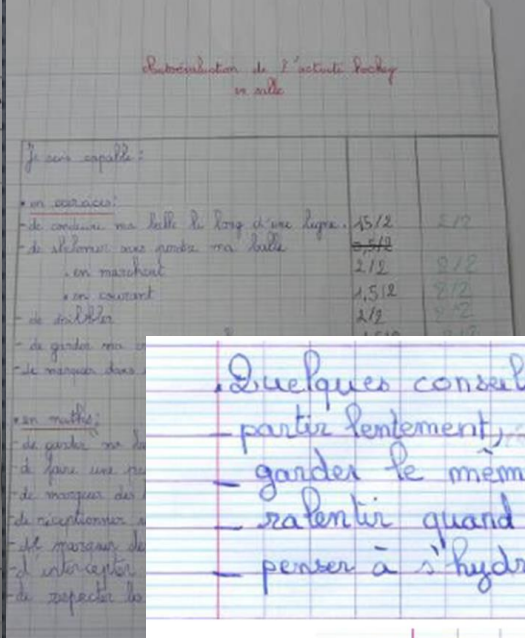 Autoévaluation de l'activité hockey
en salle
Je suis capable:
• en exercices:
- de conduire ma balle le long d'une ligne. 1,5/2 2/2
- de slalomer sans perdre ma balle 0,5/2
• en marchant 2/2 2/2
• en courant 1,5/2 2/2
- de dribbler 2/2 2/2
- de garder ma
- de marquer dans
• en matchs:
- de garder ma
- de faire une
- de marquer des
- de réceptionner
- de marquer de
- d'intercepter
- de respecter les
. Quelques conseil
- partir lentement,
- garder le mêm
- ralentir quand
- penser à s'hydr